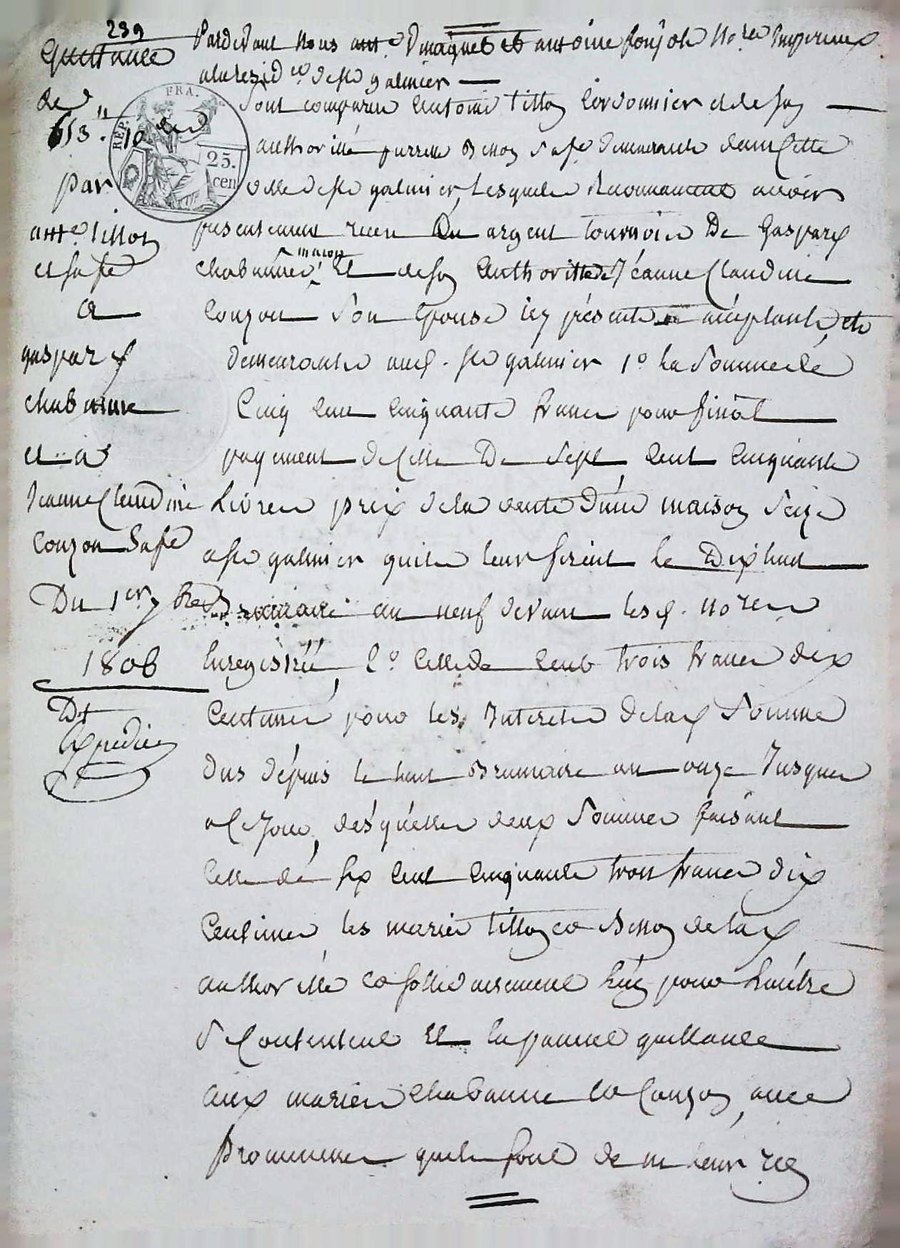 239
Quittance
de
653.# 10 c.
par
antne tissot
et sa fe
a
gaspard
chabanne
et a
Jeanne Claudine
Couzon sa fe
Du 1er 7bre
1806
Dt
Expediée
REP. FRA.
25 cen
Pardevant nous et antoine nores Imperiaux
a la residce de st galmier
Sont comparus antoine cordonnier et de son
authorité sa fe demeurants dans cette
ville de st galmier, Lesquels reconnaissent avoir
presentement reçu en argent tournois De Gaspard
chabanne maçon Et de son authorité de Jeanne Claudine
Couzon son Epouse icy présents acceptants, et
demeurants aud. st galmier 1o La Somme de
Cinq Cent Cinquante francs pour final
payement de Celle De Sept Cent Cinquante
Livres prix de la vente d'une maison
a st galmier quils leur firent le Dix huit
an neuf devant les d. nores
Enregistrée, 2o Celle de Cent trois francs dix
Centimes pour les Interets de lad. Somme
Dus dépuis le huit Brumaire an onze Jusques
a Ce Jour, désquélles deux Sommes faisant
Celle dé six Cent Cinquante trois francs dix
Centimes les mariés et de lad.
authorité pour
se Contentent Et en passent quittance
aux mariés Chabanne et Couzon, avec
promesses quils font de ne leur rien